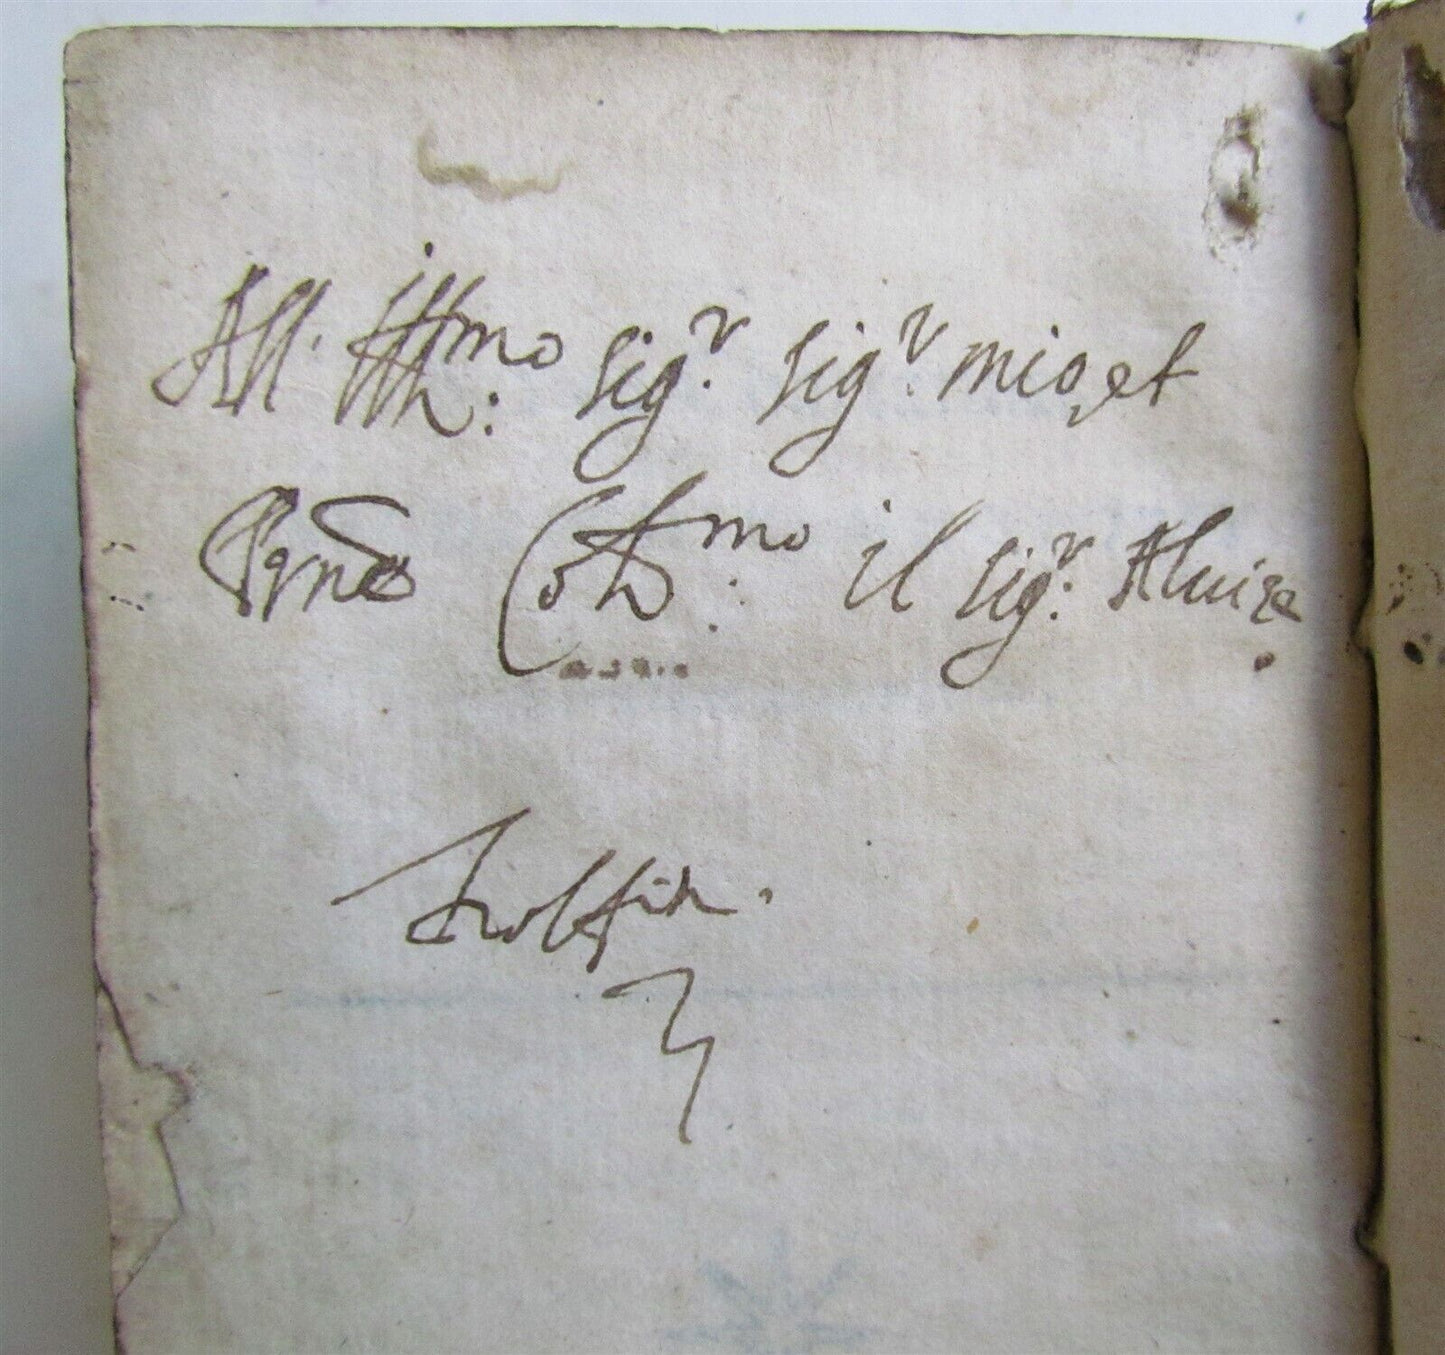 All. Ill.mo Sig.r Sig.r mio, et
P̃rne Col.mo il Sig.r Aluize